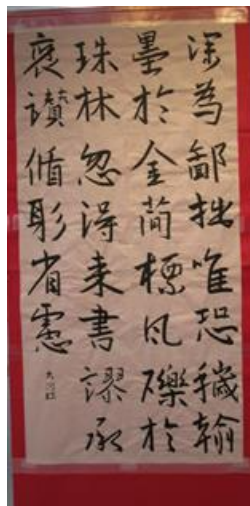 深為鄙拙唯恐穢翰
墨於金簡標瓦礫於
珠林忽得来書謬承
褒讃循躬省慮